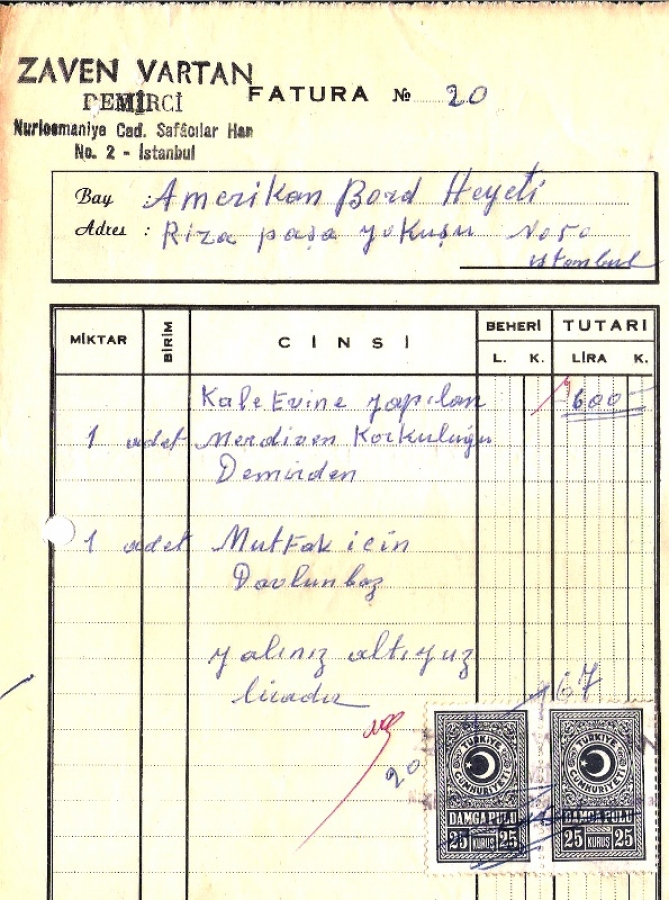 ZAVEN VARTAN
DEMİRCİ
Nuriosmaniye Cad. Safâcılar Han
No. 2 - İstanbul
FATURA № 20
Bay : Amerikan Bord Heyeti
Adres : Riza paşa yokuşu No 50
istanbul
MİKTAR BİRİM CİNSİ BEHERİ TUTARI
L. K. LİRA K.
Kale Evine yapılan 600
1 adet Merdiven Korkuluğu
Demirden
1 adet Mutfak icin
Davlunbaz
yalınız altıyuz
liradır
20 67
TÜRKİYE CUMHURİYETİ
DAMGA PULU
25 KURUŞ 25
TÜRKİYE CUMHURİYETİ
DAMGA PULU
25 KURUŞ 25